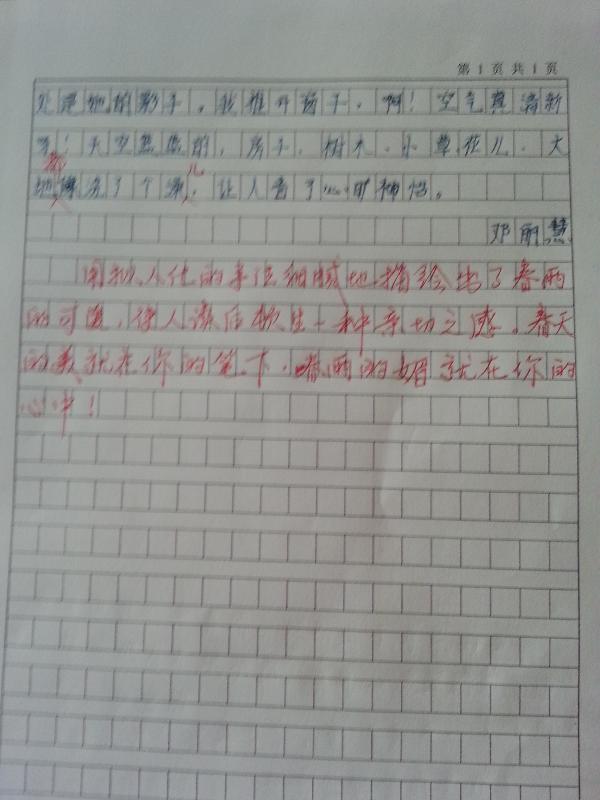 第 1 页 共 1 页
处是她的影子。我推开窗子,啊!空气真清新
呀!天空蓝蓝的,房子、树木、小草、花儿、大
地都像洗了个澡儿,让人看了心旷神怡。
邓丽慧
用拟人化的手法细腻地描绘出了春雨
的可爱,使人读后顿生一种亲切之感。春天
的美就在你的笔下,春雨的媚就在你的
心中!